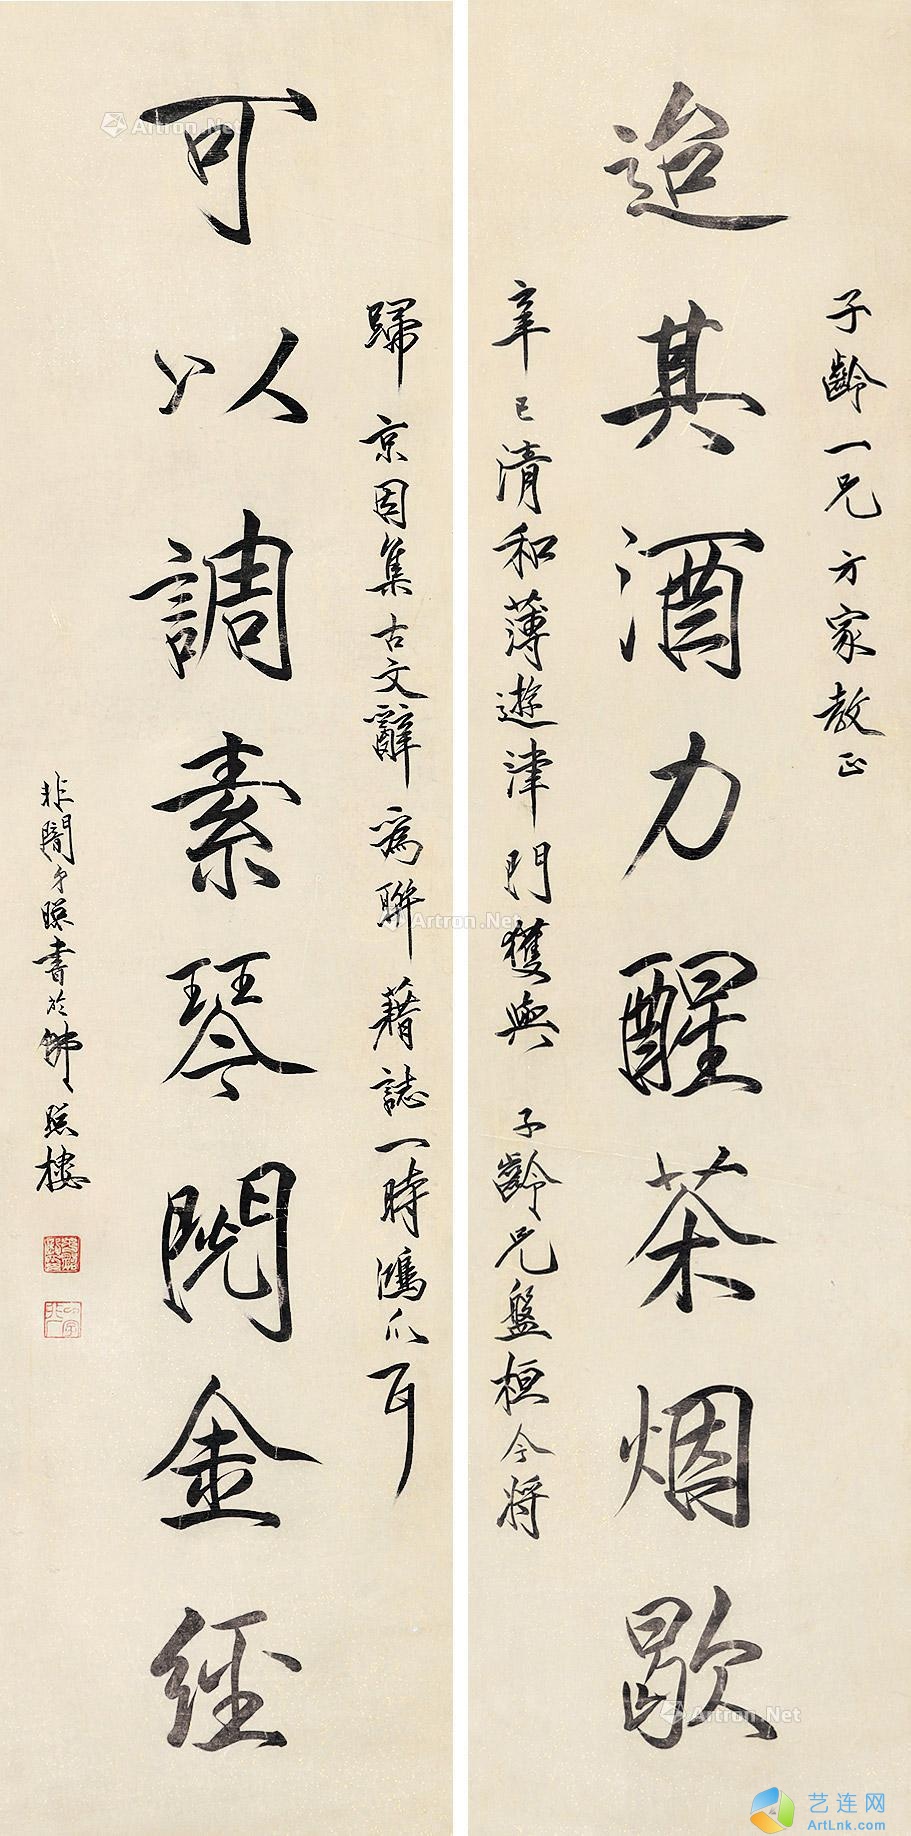 子齡一兄方家教正
迨其酒力醒茶烟歇
辛巳清和薄遊津門獲與子齡兄盤桓今將
歸京因集古文辭為聯藉誌一時鴻爪耳
可以調素琴閱金經
非闇弟照書於佛照樓
Artron.Net
Artron.Net
Artron.Net
艺连网
ArtLnk.com